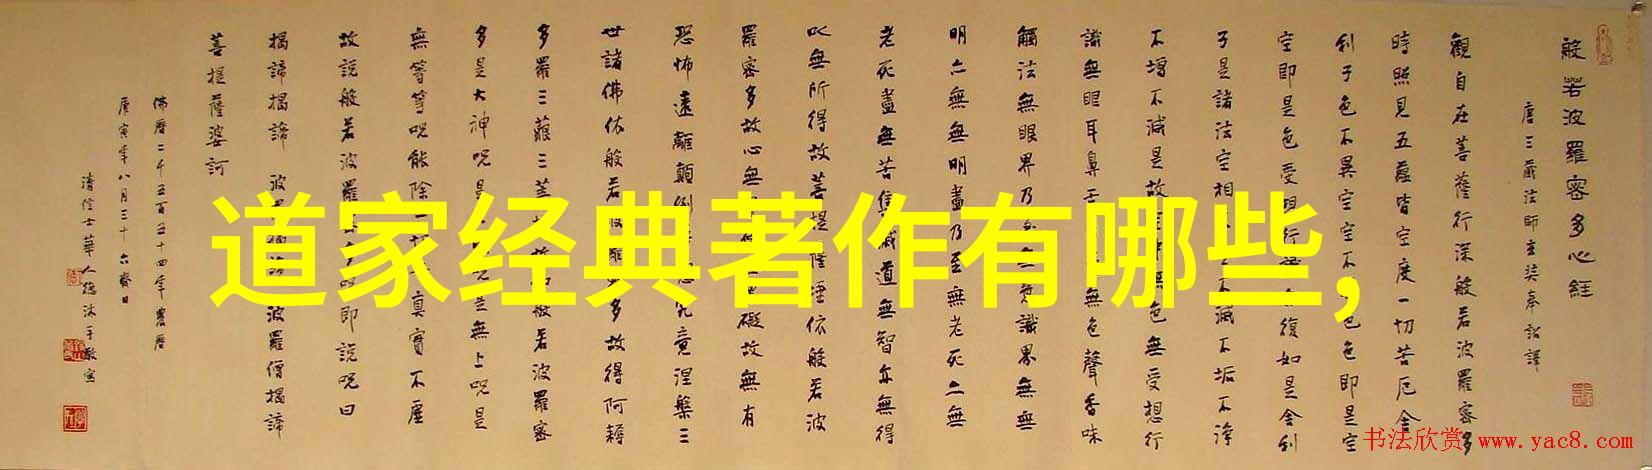 道家经典著作有哪些,
般若波羅密多心経
唐三藏法師玄奘奉詔譯
觀自在菩薩行深般若波羅密多
時照見五蘊皆空度一切苦厄舍
利子色不異空空不色色即是空
空即是色受想行復如是舍利
子是諸法空相不滅不垢不淨
不增不減是故空中無色無受想行
識無眼耳鼻舌無色聲香味
觸法無眼界乃至無意識界無無
明亦無無明盡乃至無老死亦無
老死盡無苦集滅道無智亦無得
以無所得故菩提薩埵依般若波
羅密多故心無礙故無有
恐怖遠離顛倒究竟涅槃三
世諸佛依般若波羅密多故得阿耨
多羅三藐三菩故知般若波羅密
多是大神呪是呪是無上呪是
無等等呪能除一切真實不虛
故說般若波羅密多呪即說呪曰
揭諦揭諦 波羅揭諦波羅僧揭諦
菩提薩婆訶
佛曆二千五百五十四年農曆
庚寅年八月三十六齋日
清信士華人德沐手敬寫
书法欣赏 www.yac8.com